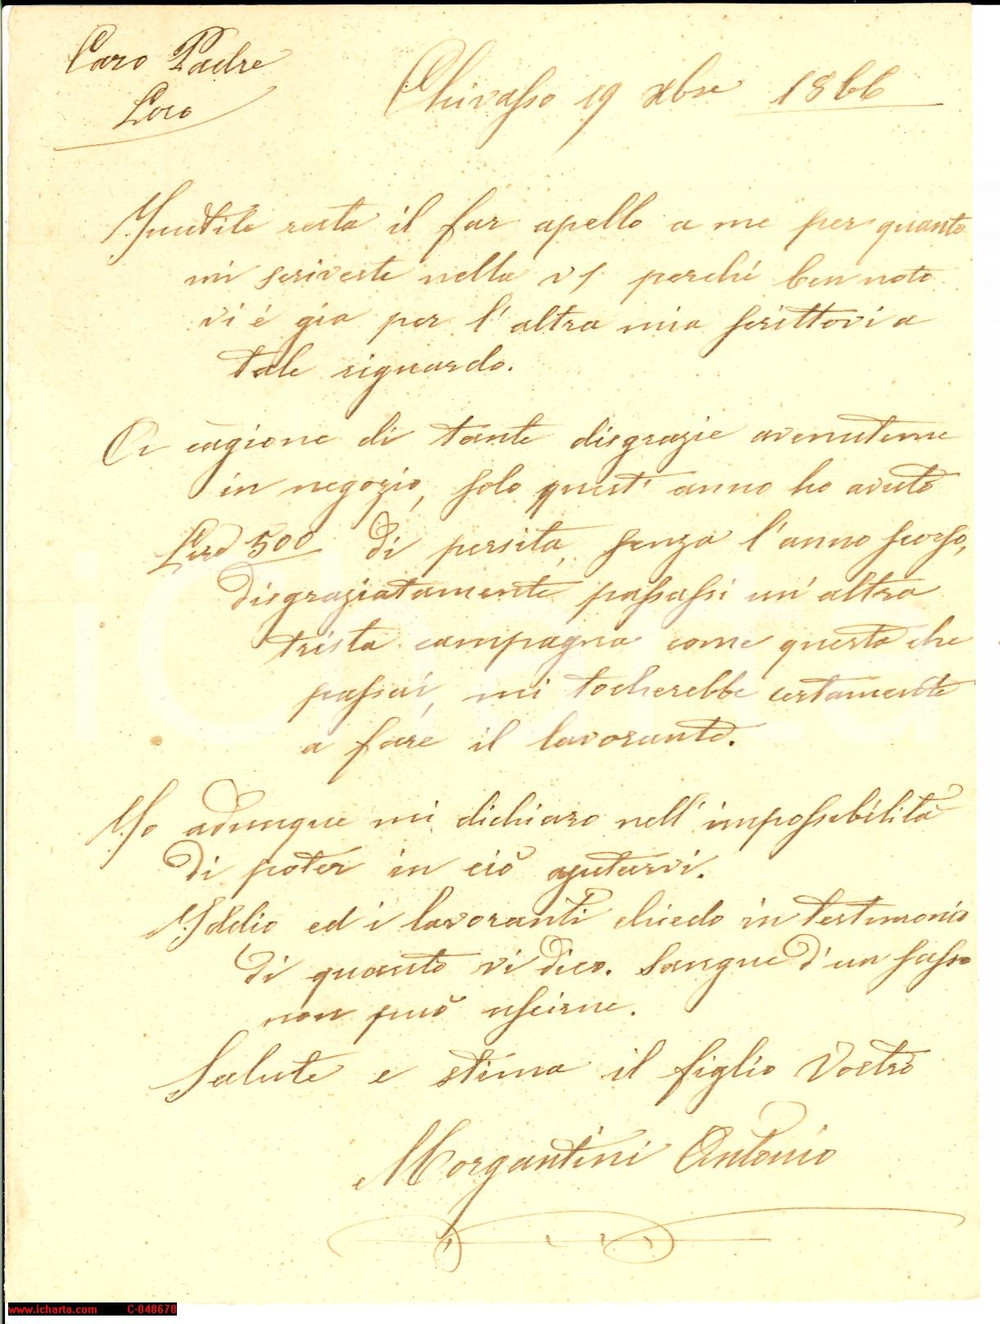 Caro Padre
Loro
Chivasso 19 Xbre 1866
Inutile resta il far apello a me per quanto
mi scriveste nella v/ perché ben noto
vi é gia per l'altra mia scrittovi a
tale riguardo.
A cagione di tante disgrazie avenuteme
in negozio, solo quest' anno ho avuto
500 di persita, senza l'anno scorso,
disgraziatamente passassi un'altra
trista campagna come questa che
passai, mi tocherebbe certamente
a fare il lavorante.
Io adunque mi dichiaro nell'impossibilità
di poter in ciò ajutarvi.
Iddio ed i lavoranti chiedo in testimonio
di quanto vi dico. Sangue d'un sasso
non può uscirne.
Salute e stima il figlio Vostro
Morgantini Antonio
iCharta
www.icharta.com C-048678